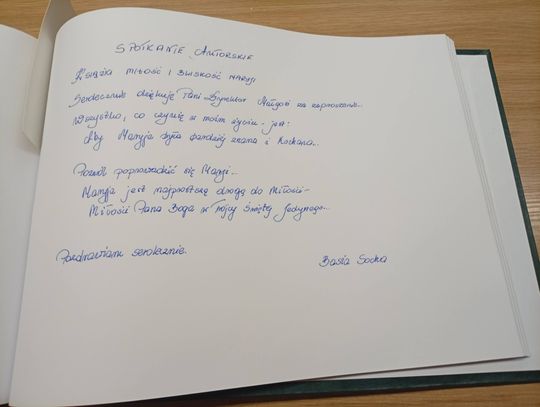 SPOTKANIE AUTORSKIE
KSIĄŻKA MIŁOŚĆ I BLISKOŚĆ MARYJI
Serdecznie dziękuję Pani Dyrektor Małgosi za zaproszenie...
Wszystko, co czynię w moim życiu - jest:
Aby Maryja była bardziej znana i kochana...
Pozwól poprowadzić się Maryi...
Maryja jest najprostszą drogą do Miłości-
Miłości Pana Boga w Trójcy Świętej Jedynego...
Pozdrawiam serdecznie.
Basia Socha